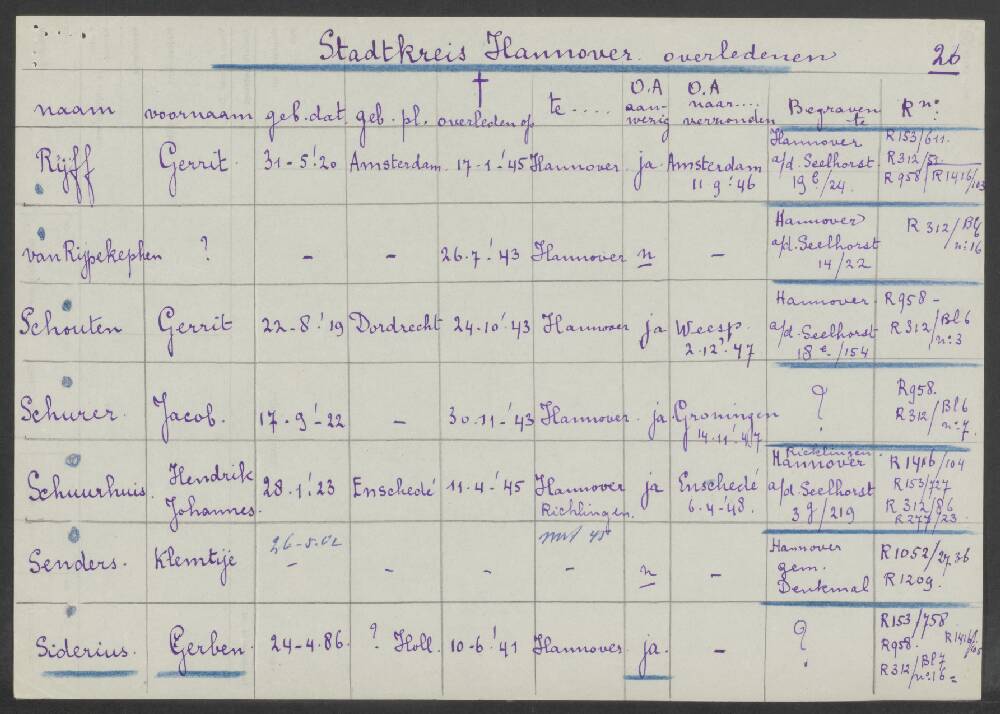 Stadtkreis Hannover. overledenen 26
naam voornaam geb. dat. geb. pl. † overleden op te .... O.A aanwezig O.A naar.... verzonden Begraven te R no:
Rijff Gerrit 31-5-'20 Amsterdam. 17-1-'45 Hannover. ja. Amsterdam 11-9-'46 Hannover a/d. Seelhorst 19 e/24. R153/611. R312/ R958/R1416/103
van Rijpekephen ? - - 26-7-'43 Hannover n - Hannover a/d. Seelhorst 14/22 R 312/Bl6 no:16
Schouten Gerrit 22-8-'19 Dordrecht 24-10-'43 Hannover ja Weesp. 2-12-'47 Hannover. a/d. Seelhorst 18 e./154 R958- R312/Bl6 no:3
Schurer. Jacob. 17-9-'22 - 30-11-'43 Hannover. ja. Groningen 14-11-'47 ? R958. R312/Bl6 no:7.
Schuurhuis. Hendrik Johannes. 28-1-'23 Enschedé 11-4-'45 Hannover Richlingen. ja Enschedé 6-4-'48. Ricklingen. Hannover a/d. Seelhorst 3 g/219 R1416/104 R153/727 R 312/86 R277/23.
Senders. Klemtije 26-5-02 - - - mrt 45 - n - Hannover gem. Denkmal R1052/ 36 R1209.
Siderius. Gerben. 24-4-86. ? Holl. 10-6-'41 Hannover. ja. - ? R153/758. R958. R1416/105 R312/Bl7 no:16=